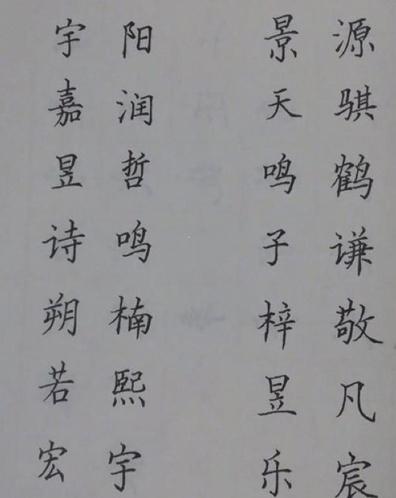 宇阳 景源
嘉润 天骐
昱哲 鸣鹤
诗鸣 子谦
朔楠 梓敬
若熙 昱凡
宏宇 乐宸